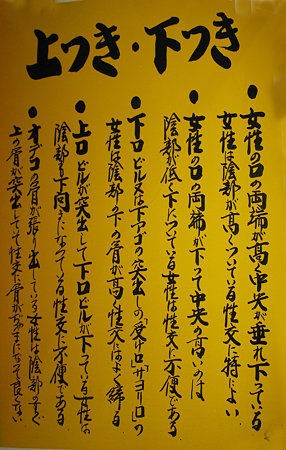 上つき・下つき
●女性の口の両端が高く中央が垂れ下っている
女性は陰部が高くついている性交に特によい
●女性の口の両端が下って中央の高いのは
陰部が低く下についている女性は性交に不便である
●下口ビル又は下アゴの突出しの受け口(サヨリ口)の
女性は陰部の下の骨が高性交にはよく締る
●上口ビルが突出して下口ビルが下っている女性は
陰部も下向きになっている性交に不便である
●オデコの骨が張り出している女性は陰部のすぐ
上の骨が突出してって性交に骨がじゃまになって良くない